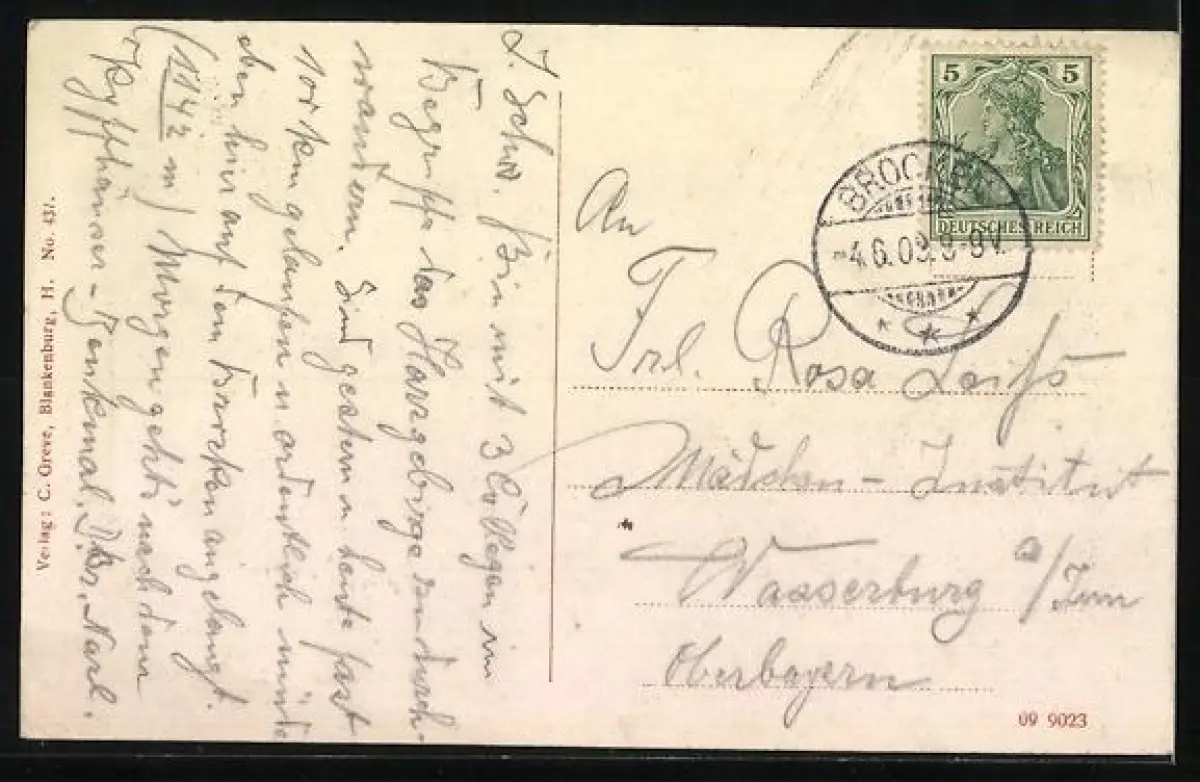 L. Schw. Bin mit 3 Collegen im
Begriffe das Harzgebirge zu durch-
wandern. Sind gestern u. heute fast
70 km gelaufen u. ordentlich müde
eben hier auf dem Brocken angelangt.
(1142 m) Morgen geht's nach dem
Kyffhäuser-Denkmal. D. Br. Karl.
Verlag: C. Greve, Blankenburg, H. No. 431.
5 5
DEUTSCHES REICH
BROCKEN
-4.6.09. 8-9V.
An
Frl. Rosa Leiß
Mädchen-Institut
Wasserburg a/Inn
Oberbayern
09 9023